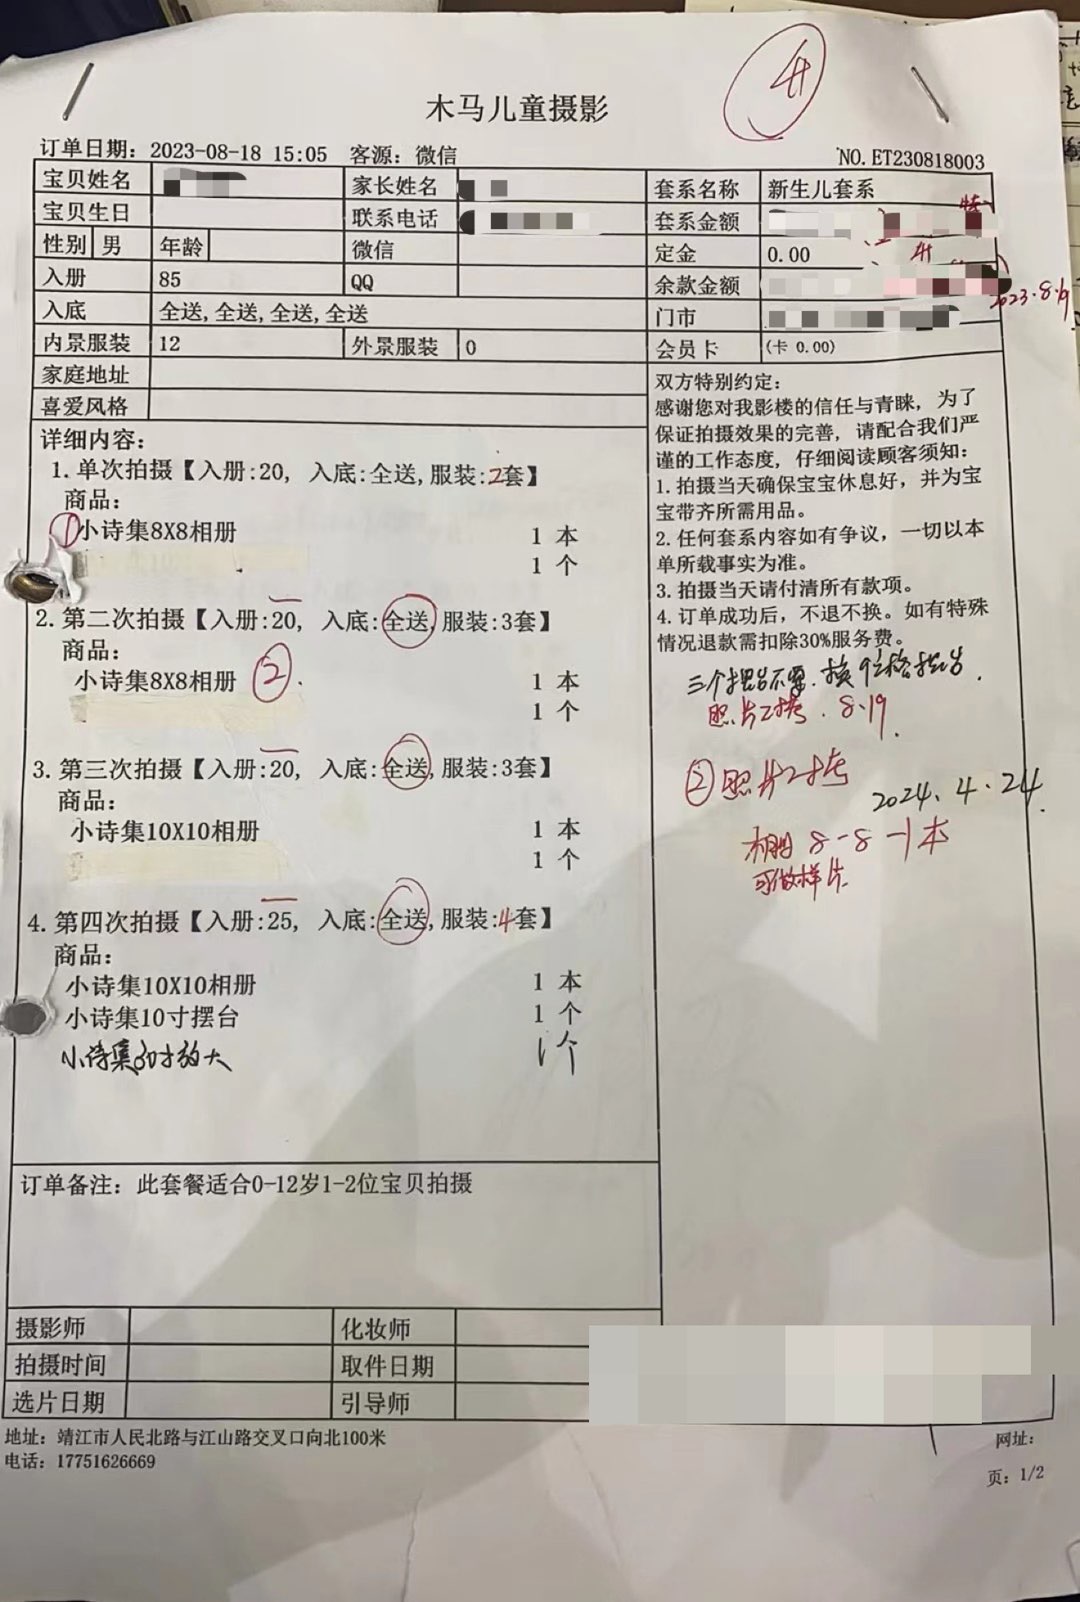 木马儿童摄影
订单日期：2023-08-18 15:05 客源：微信 NO.ET230818003
宝贝姓名 家长姓名 套系名称 新生儿套系
宝贝生日 联系电话 套系金额
性别 男 年龄 微信 定金 0.00
入册 85 QQ 余款金额
2023.8.19
入底 全送,全送,全送,全送 门市
内景服装 12 外景服装 0 会员卡 (卡 0.00)
家庭地址
喜爱风格
详细内容：
1. 单次拍摄【入册:20, 入底:全送,服装:2套】
商品：
① 小诗集8X8相册 1 本
1 个
2. 第二次拍摄【入册:20, 入底:全送,服装:3套】
商品：
小诗集8X8相册 ② 1 本
1 个
3. 第三次拍摄【入册:20, 入底:全送,服装:3套】
商品：
小诗集10X10相册 1 本
1 个
4. 第四次拍摄【入册:25, 入底:全送,服装:4套】
商品：
小诗集10X10相册 1 本
小诗集10寸摆台 1 个
小诗集30寸放大 1个
双方特别约定：
感谢您对我影楼的信任与青睐，为了
保证拍摄效果的完善，请配合我们严
谨的工作态度，仔细阅读顾客须知：
1. 拍摄当天确保宝宝休息好，并为宝
宝带齐所需用品。
2. 任何套系内容如有争议，一切以本
单所载事实为准。
3. 拍摄当天请付清所有款项。
4. 订单成功后，不退不换。如有特殊
情况退款需扣除30%服务费。
三个摆台不要.换9宫格摆台.
照片已拷.8.19.
②照片已拷
2024.4.24.
相册 8-8 一本
可做样片.
订单备注：此套餐适合0-12岁1-2位宝贝拍摄
摄影师 化妆师
拍摄时间 取件日期
选片日期 引导师
地址：靖江市人民北路与江山路交叉口向北100米 网址：
电话：17751626669 页：1/2